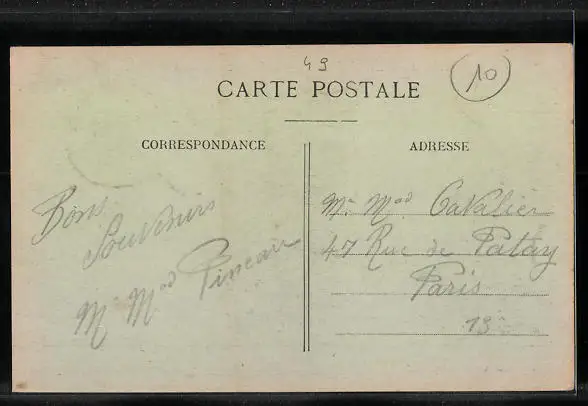 49
10
CARTE POSTALE
CORRESPONDANCE
ADRESSE
Bons
Souvenirs
Mr Mad Pineau
Mr Mad Cavalier
47 Rue de Patay
Paris
13e